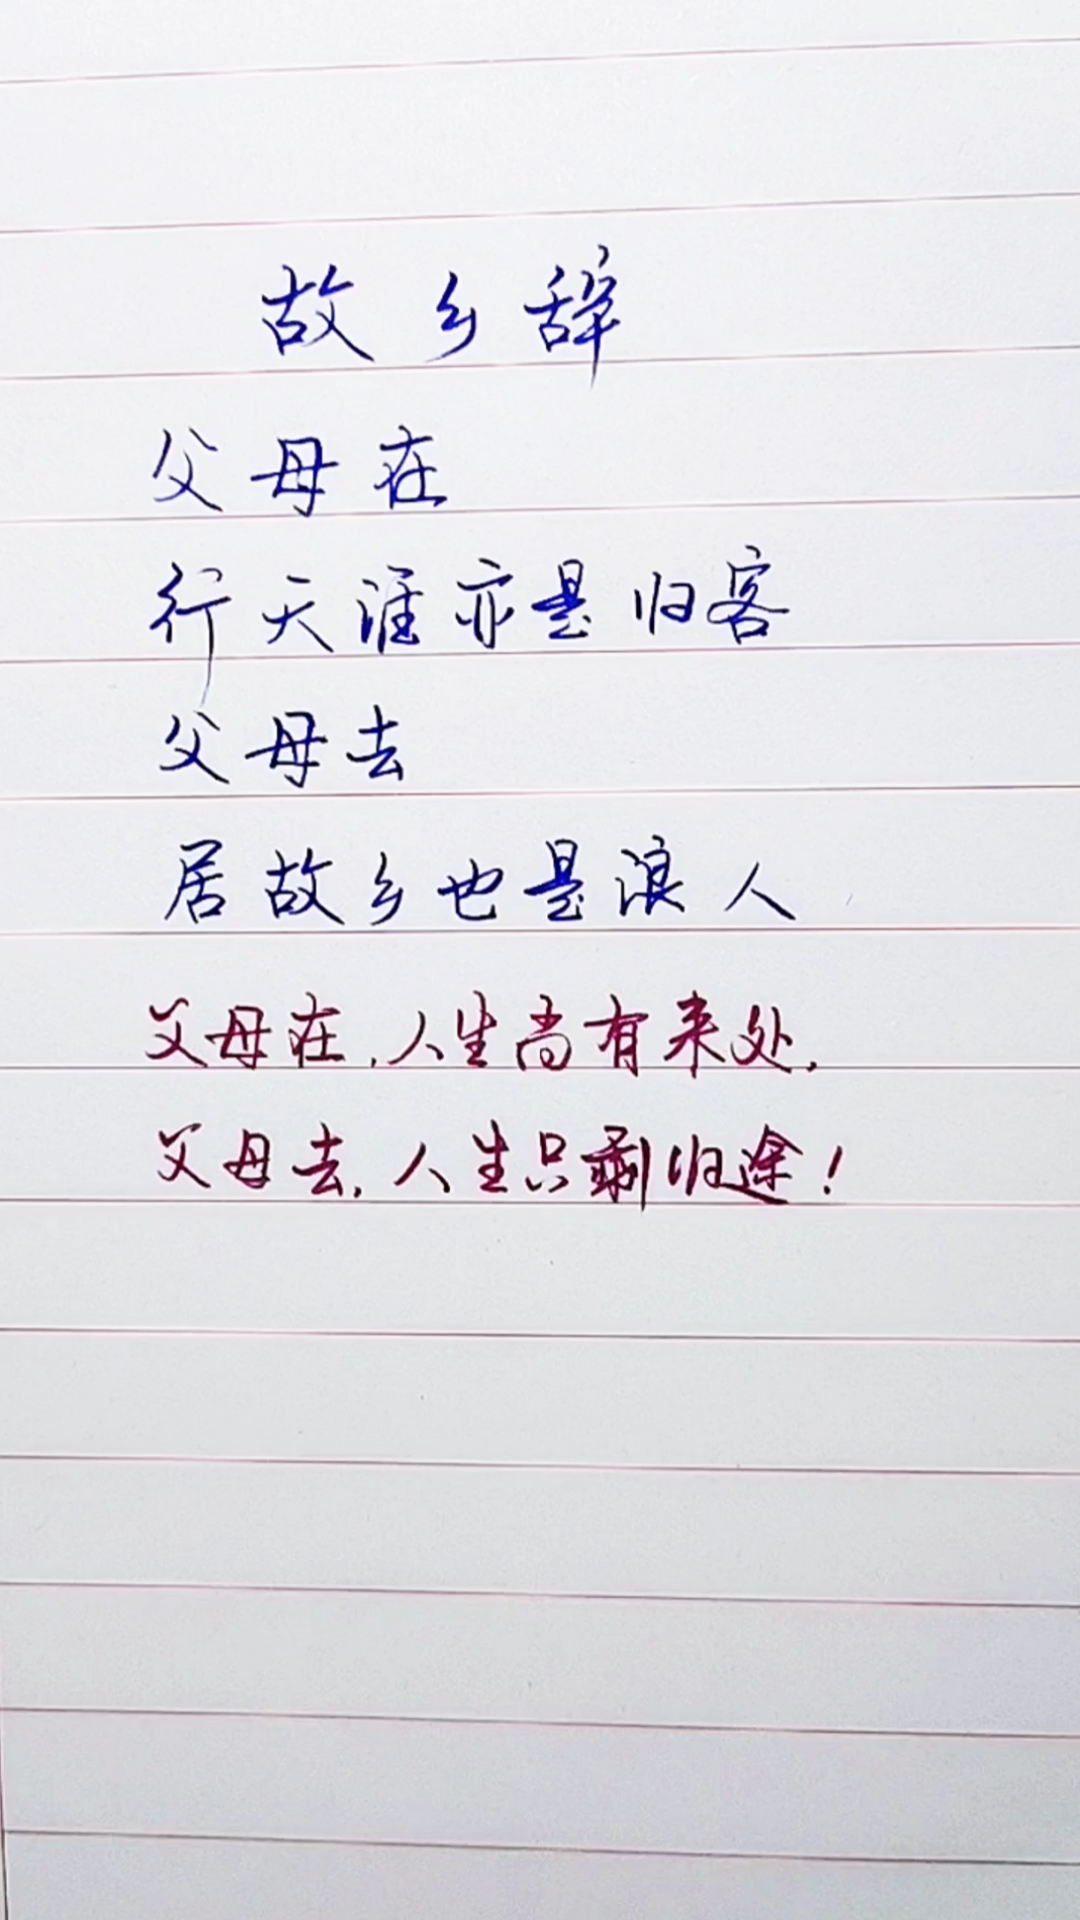 故乡辞
父母在
行天涯亦是归客
父母去
居故乡也是浪人
父母在,人生尚有来处,
父母去,人生只剩归途!